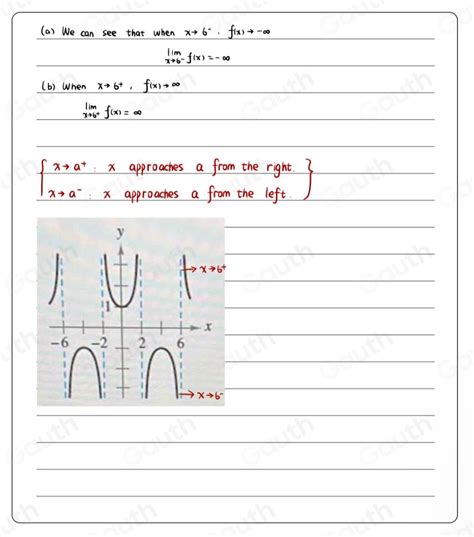 (a) We can see that when x→6⁻, f(x)→-∞
lim f(x)=-∞
x→6⁻
(b) When x→6⁺, f(x)→∞
lim f(x)=∞
x→6⁺
x→a⁺: x approaches a from the right.
x→a⁻: x approaches a from the left.
y
x→6⁺
1
x
-6 -2 2 6
x→6⁻
Gauth